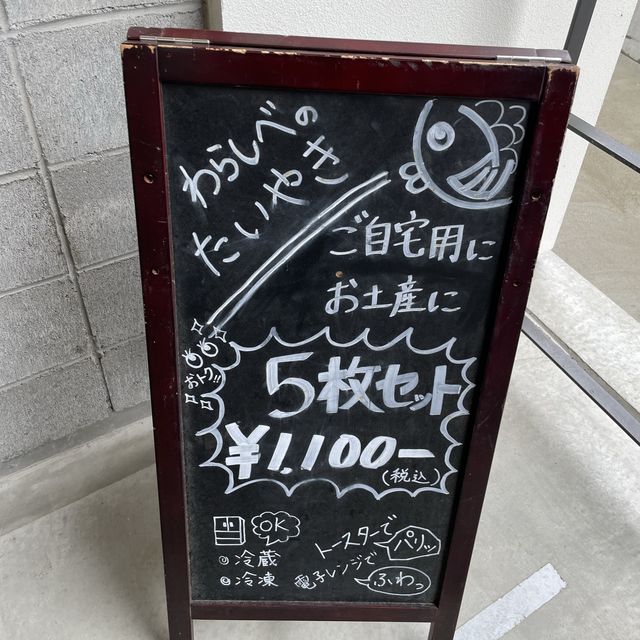 わらしべの
たいやき
ご自宅用に
お土産に
おトク!!
5枚セット
¥1,100-
(税込)
OK
冷蔵
冷凍
トースターで
パリッ
電子レンジで
ふわっ